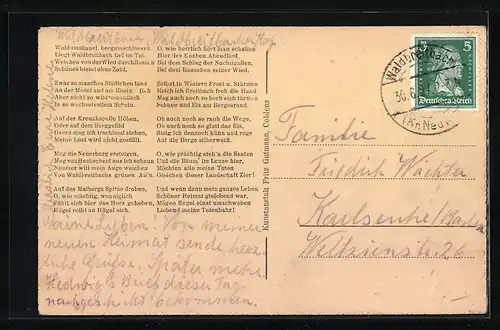 Waldbreitbach, Waldbreitbacher Hof
Waldumsäumet, bergumschlossen
Liegt Waldbreitbach tief im Tal.
Weichen von der Wied durchflossen
Schönes bietet ohne Zahl.
Zwar so manches Städtchen fand
An der Mosel und am Rhein ich
Aber nicht so wildromantisch
In so wechselvollem Schein.
Auf der Kreuzkapelle Höhen,
Oder auf dem Berggefild
Overs mag ich trachlend stehen,
Meine Lust wird nicht gestillt.
Mag die Neuerburg erzeigen,
Mag von Hochscheid aus ich schaun
Nimmer will mein Auge weichen
Von Waldbreitbachs grünen Au'n.
Auf des Malbergs Spitze droben,
O, wie mächtig, wonniglich
Fühlt sich hier das Herz gehoben,
Hügel reiht an Hügel sich.
O, wie herrlich hört man schallen
Hier des Kuhhes Abendlied.
Bei dem Schlag der Nachtigallen,
Bei dem Rauschen seiner Wied.
Selbst in Winters Frost u. Stürmen
Reich ich Breitbach froh die Hand
Mag auch noch so hoch sich türmen
Schnee und Eis am Bergesrand.
Ob auch noch so rauh die Wege,
Ob auch noch so glatt das Eis,
Steig ich dennoch kühn und rege
Auf die Berge silberweiß.
O, wie prächtig steh'n die Saaten
Und die Bäum' im Lenze hier,
Möchten alle meine Taten
Gleichen dieser Landschaft Zier!
Und wenn dann mein ganzes Leben
Schöner Heimat gleichend war,
Mögen Engel einst umschweben
Liebend meine Totenbahr!
Kunstanstalt Fritz Gutmann, Coblenz
Von meiner
neuen Heimat sende herz-
liche Grüße. Später mehr.
Hedwig's Brief dieser Tag
nachgeschickt bekommen.
5
Deutsches Reich
Waldbreitbach
30.6.
(Kr. Neuwied)
Familie
Friedrich Wächter
Karlsruhe/Baden
Weltzienstr. 26